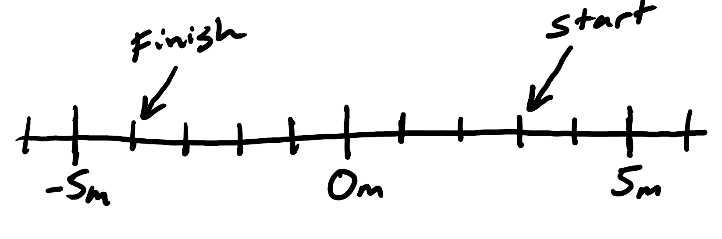 Finish
Start
-5m
0m
5m